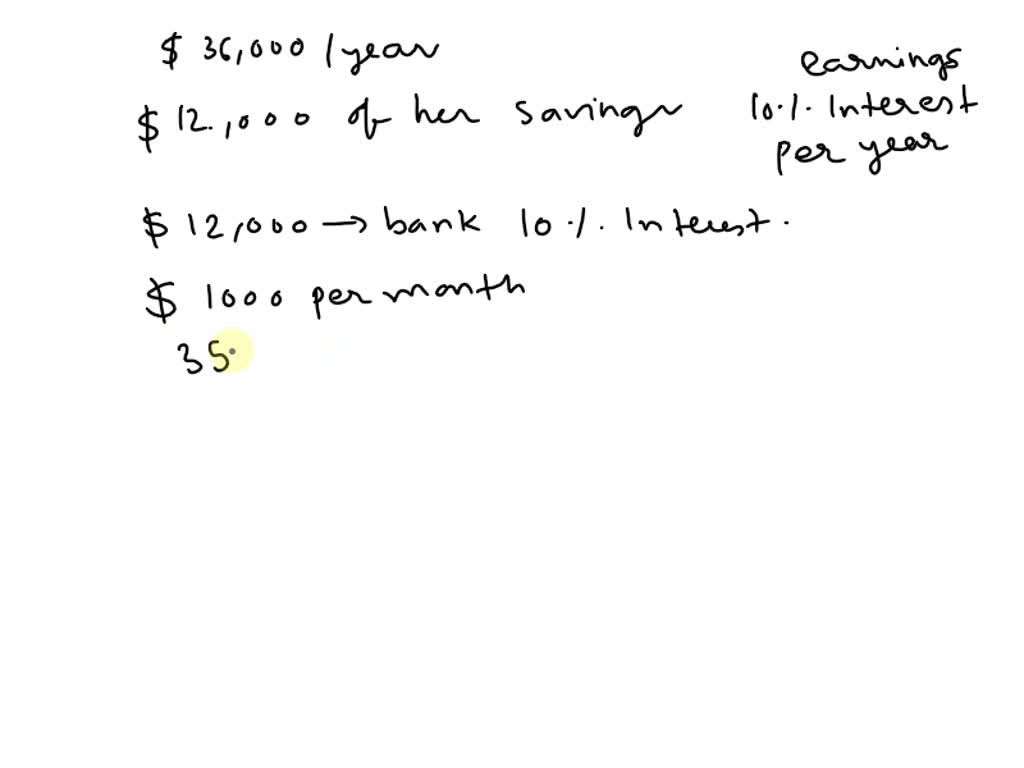 $ 36,000 / year
$ 12,000 of her savings
earnings
10% Interest
per year
$ 12,000 → bank 10% Interest.
$ 1000 per month
35